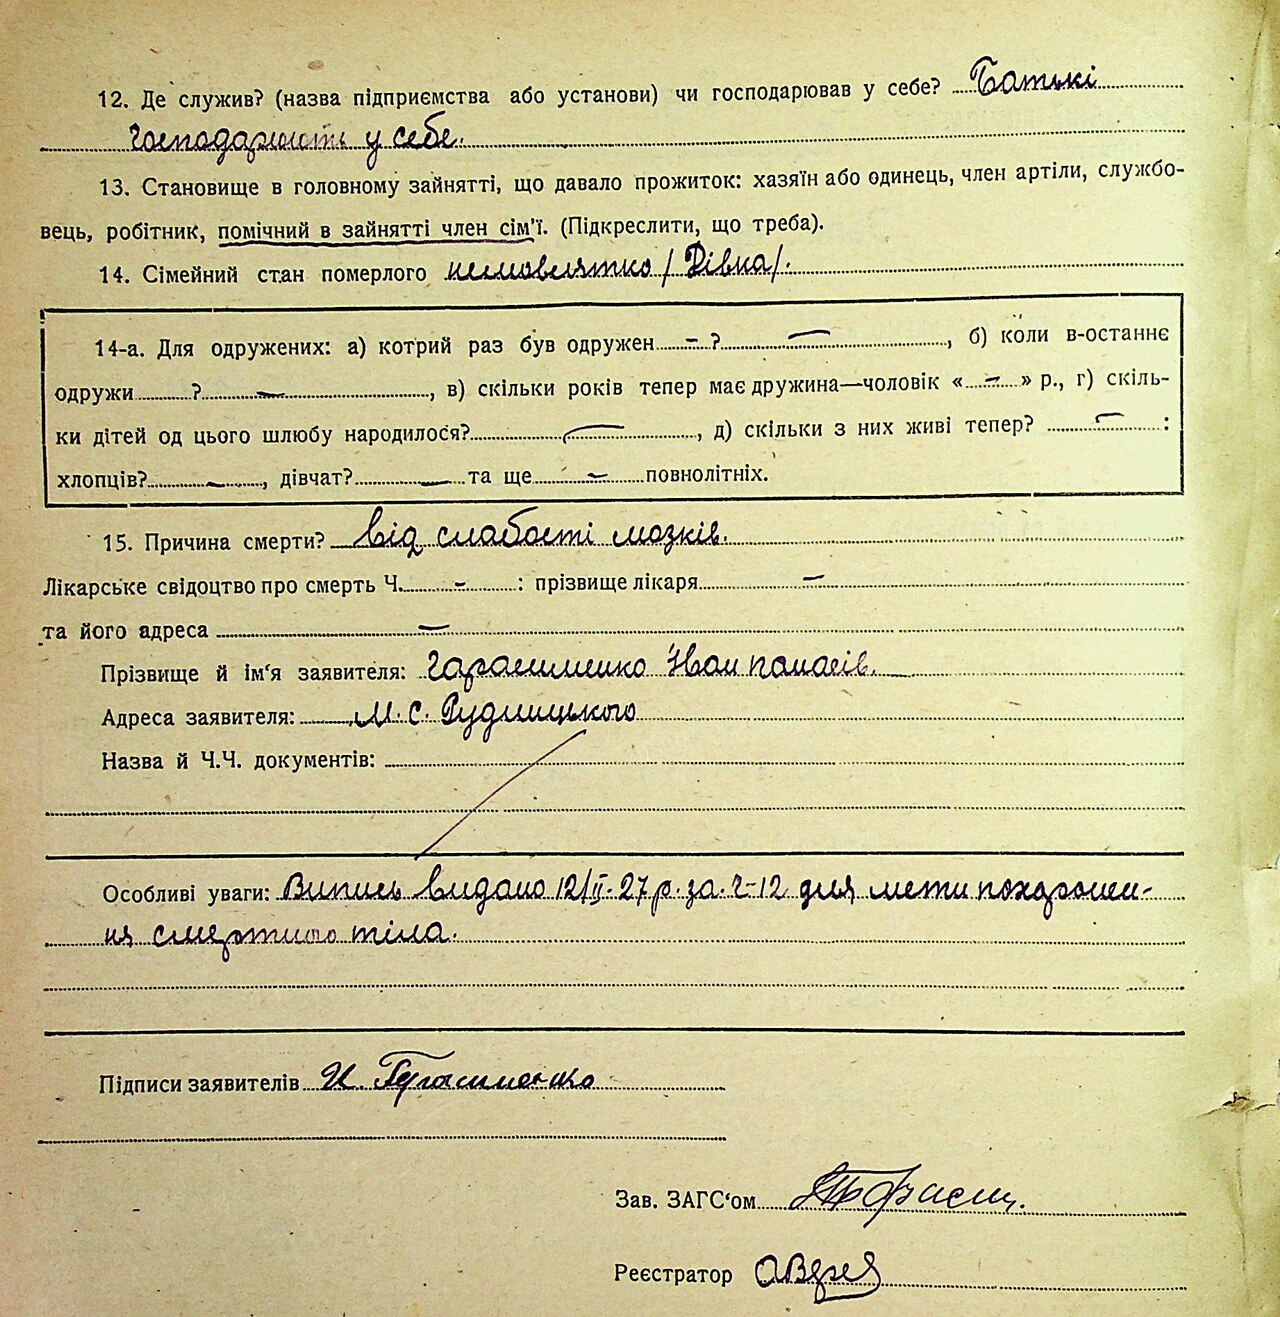 12. Де служив? (назва підприємства або установи) чи господарював у себе? Батькі
господарюють у себе.
13. Становище в головному зайнятті, що давало прожиток: хазяїн або одинець, член артіли, службо-
вець, робітник, помічний в зайнятті член сім'ї. (Підкреслити, що треба).
14. Сімейний стан померлого немовлятко /Дівка/.
14-а. Для одружених: а) котрий раз був одружен - ? —, б) коли в-останнє
одружи ? —, в) скільки років тепер має дружина—чоловік « - » р., г) скіль-
ки дітей од цього шлюбу народилося? —, д) скільки з них живі тепер? — :
хлопців? —, дівчат? — та ще — повнолітніх.
15. Причина смерти? від слабості мозків.
Лікарське свідоцтво про смерть Ч. - : прізвище лікаря —
та його адреса —
Прізвище й ім'я заявителя: Гарасименко Іван панасів.
Адреса заявителя: М. С. Рудницького
Назва й Ч.Ч. документів:
Особливі уваги: Випись видано 12/II-27 р. за. Ч-12 для мети похоронен-
ня смертного тіла.
Підписи заявителів И. Гарасименко
Зав. ЗАГС'ом
Реєстратор